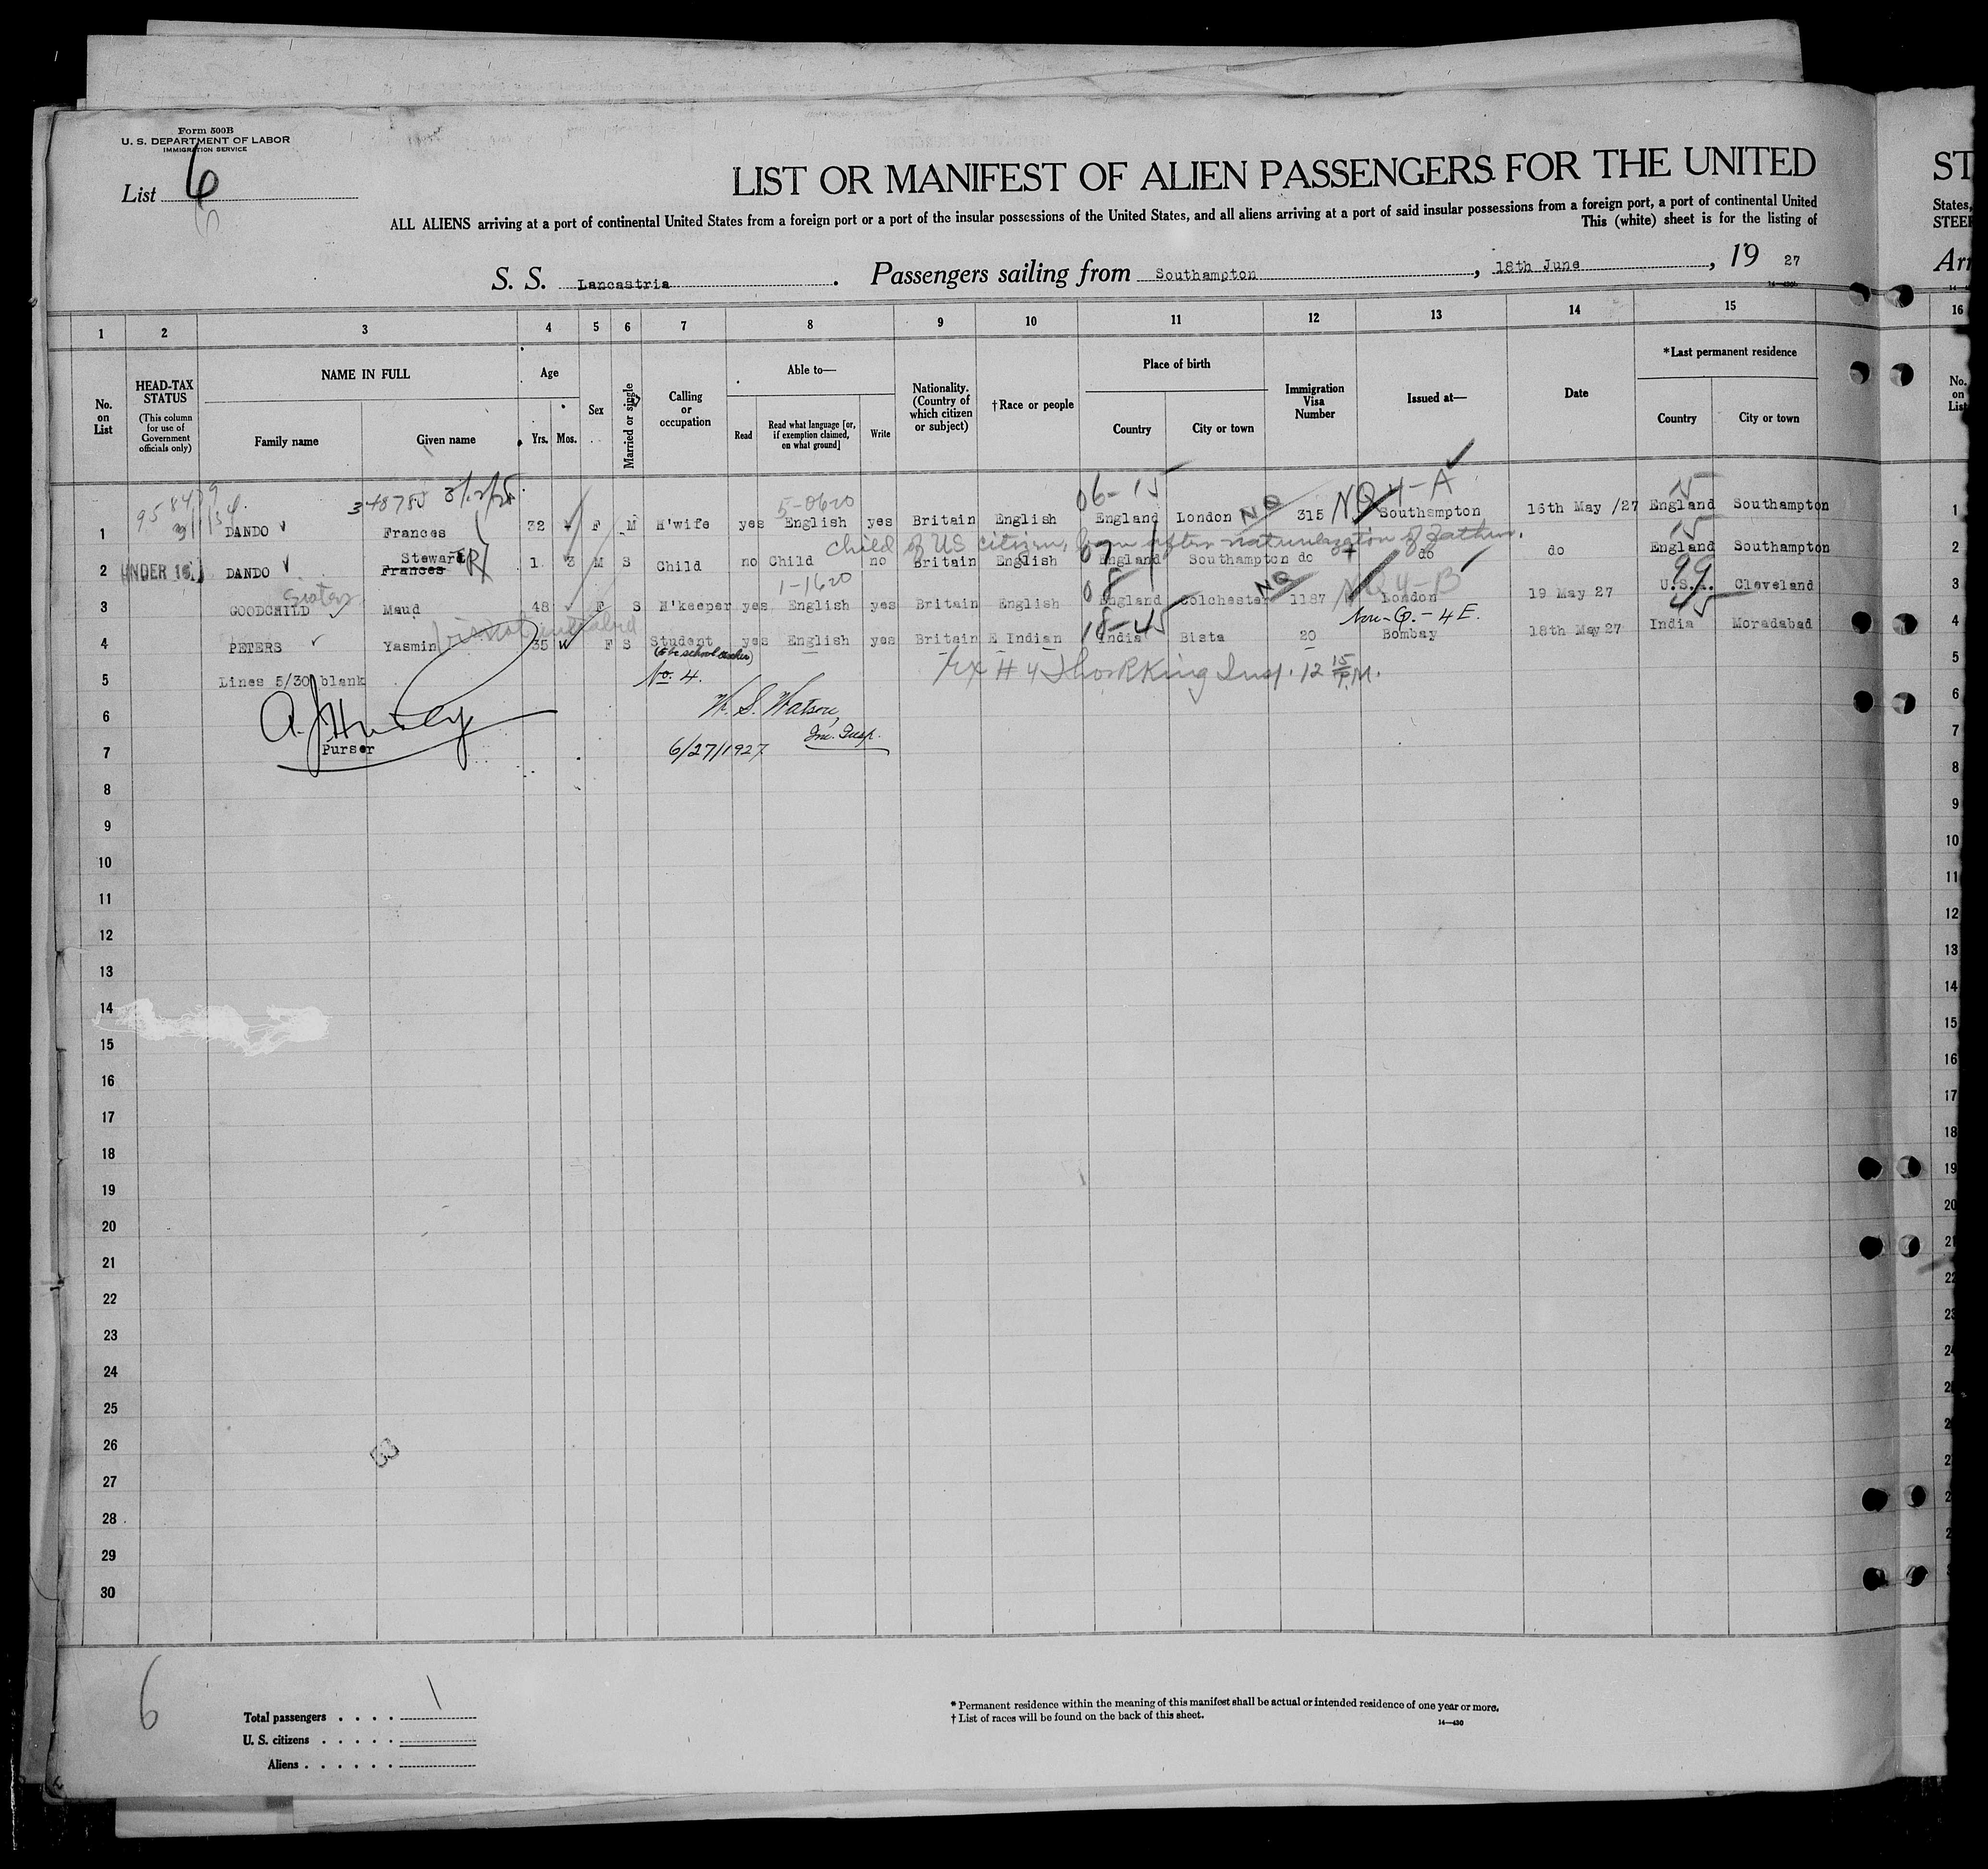 Form 500B
U. S. DEPARTMENT OF LABOR
IMMIGRATION SERVICE
List 6
LIST OR MANIFEST OF ALIEN PASSENGERS FOR THE UNITED
ST
ALL ALIENS arriving at a port of continental United States from a foreign port or a port of the insular possessions of the United States, and all aliens arriving at a port of said insular possessions from a foreign port, a port of continental United
States,
This (white) sheet is for the listing of
STEER
S. S. Lancastria. Passengers sailing from Southampton, 18th June, 19 27
Arr
1 2 3 4 5 6 7 8 9 10 11 12 13 14 15 16
No. on List
HEAD-TAX STATUS
(This column for use of Government officials only)
NAME IN FULL
Family name
Given name
Age
Yrs. Mos.
Sex
Married or single
Calling or occupation
Able to—
Read
Read what language [or, if exemption claimed, on what ground]
Write
Nationality. (Country of which citizen or subject)
†Race or people
Place of birth
Country
City or town
Immigration Visa Number
Issued at—
Date
*Last permanent residence
Country
City or town
No. on List
348785 5-0620 06-15 NQ 4-A 15
1 DANDO Frances 32 F M H'wife yes English yes Britain English England London NQ 315 Southampton 16th May /27 England Southampton 1
child of US citizen, born after naturalization of father. 15
2 UNDER 16 DANDO Steward Frances 1 3 M S Child no Child no Britain English England Southampton do do do England Southampton 2
Sister 1-1620 08 NQ NQ 4-B 99
3 GOODCHILD Maud 48 F S H'keeper yes English yes Britain English England Colchester 1187 London 19 May 27 U.S.A. Cleveland 3
18-45 Non-Q.-4E. 45
4 PETERS Yasmin 35 F S Student yes English yes Britain E Indian India Bista 20 Bombay 18th May 27 India Moradabad 4
(to be school teacher)
5 Lines 5/30 blank No. 4. 5
6 W. S. Watson, 6
Imm. Insp.
7 Purser 6/27/1927 7
8 8
9 9
10 10
11 11
12 12
13 13
14 14
15 15
16 16
17 17
18 18
19 19
20 20
21 21
22 22
23 23
24
25
26
27
28
29
30
6
Total passengers . . . . 1
U. S. citizens . . . . .
Aliens . . . . . .
* Permanent residence within the meaning of this manifest shall be actual or intended residence of one year or more.
† List of races will be found on the back of this sheet.
14—430